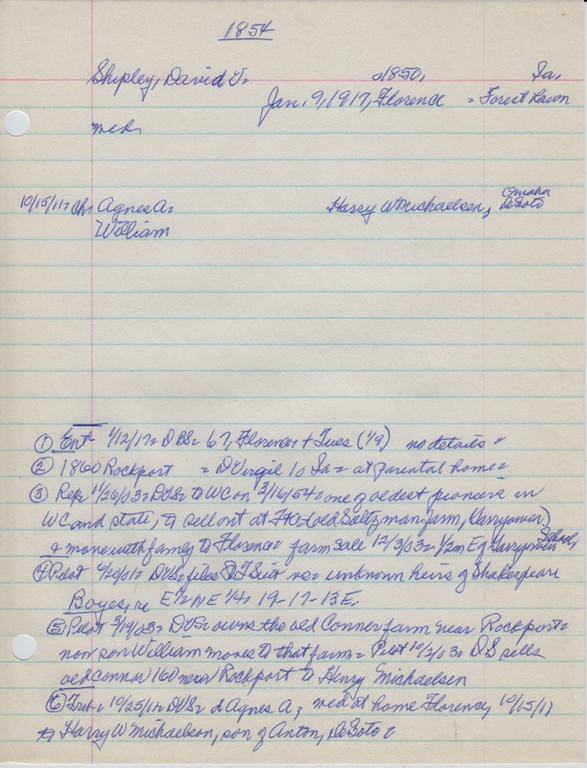 1854
Shipley, David V= c1850, Ia,
Jan. 9, 1917, Florence = Forest Lawn
med,
Omaha
10/15/11= ch, Agnes A= Harry W Michaelsen, DeSoto
William
① Ent= 1/12/17= DVS= 67, Florence + Tues (1/9) no details =
② 1860 Rockport = D Virgil 10 Ia = at parental home =
③ Repr 11/20/03= DVS= to WCon 3/16/54= one of oldest pioneers in
WC and state, to sell out at old Saltzman farm,
& move with family to Florence = farm sale 12/3/03= 1/2m E of School,
④ Pilot 6/20/01= DVS= files QT Suit vs= unknown heirs of Shakespeare
Boyes, re E½ NE ¼= 19-17-13E.
⑤ Pilot 3/19/03= DVS= owns the old Conner farm near Rockport=
now son William moves to that farm = Pilot 10/2/03= DS sells
old Connor 160 near Rockport to Henry Michaelsen
⑥ Trib= 10/25/11= DVS= d Agnes A, med at home Florence, 10/15/11
to Harry W Michaelson, son of Anton, DeSoto =